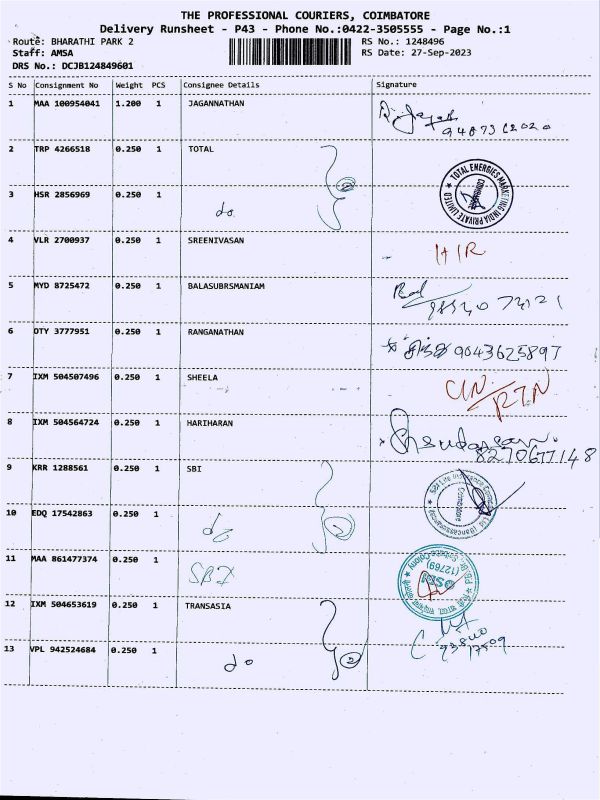 THE PROFESSIONAL COURIERS, COIMBATORE
Delivery Runsheet - P43 - Phone No.:0422-3505555 - Page No.:1
Route: BHARATHI PARK 2 RS No.: 1248496
Staff: AMSA RS Date: 27-Sep-2023
DRS No.: DCJB124849601
S No Consignment No Weight PCS Consignee Details Signature
1 MAA 100954041 1.200 1 JAGANNATHAN
2 TRP 4266518 0.250 1 TOTAL
TOTAL ENERGIES MARKETING INDIA PRIVATE LIMITED
3 HSR 2856969 0.250 1 do
4 VLR 2700937 0.250 1 SREENIVASAN
5 MYD 8725472 0.250 1 BALASUBRSMANIAM
6 OTY 3777951 0.250 1 RANGANATHAN 9043625897
7 IXM 504507496 0.250 1 SHEELA
8 IXM 504564724 0.250 1 HARIHARAN
9 KRR 1288561 0.250 1 SBI
10 EDQ 17542863 0.250 1 do 2
11 MAA 861477374 0.250 1 SBI
(12769)
12 IXM 504653619 0.250 1 TRANSASIA
13 VPL 942524684 0.250 1 do 2